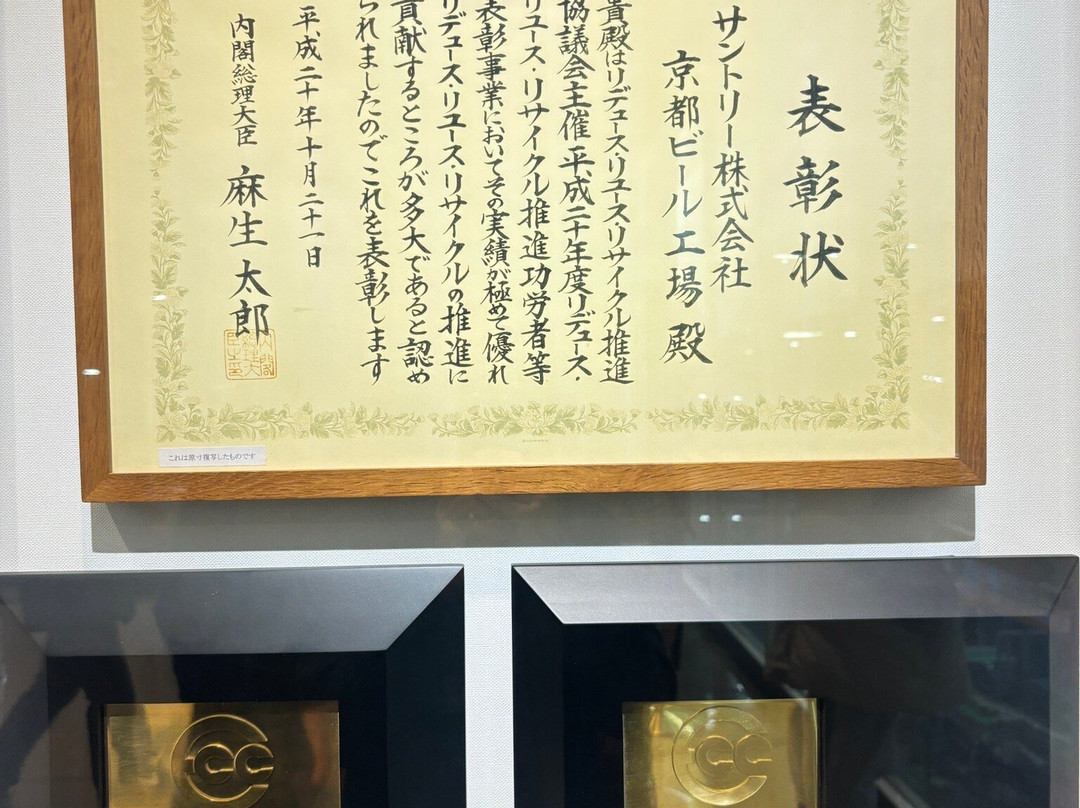 表彰状
サントリー株式会社
京都ビール工場殿
貴殿はリデュース・リユース・リサイクル推進
協議会主催平成二十年度リデュース・
リユース・リサイクル推進功労者等
表彰事業においてその実績が極めて優れ
リデュース・リユース・リサイクルの推進に
貢献するところが多大であると認め
られましたのでこれを表彰します
平成二十年十月二十一日
内閣総理大臣 麻生太郎
これは原寸複写したものです